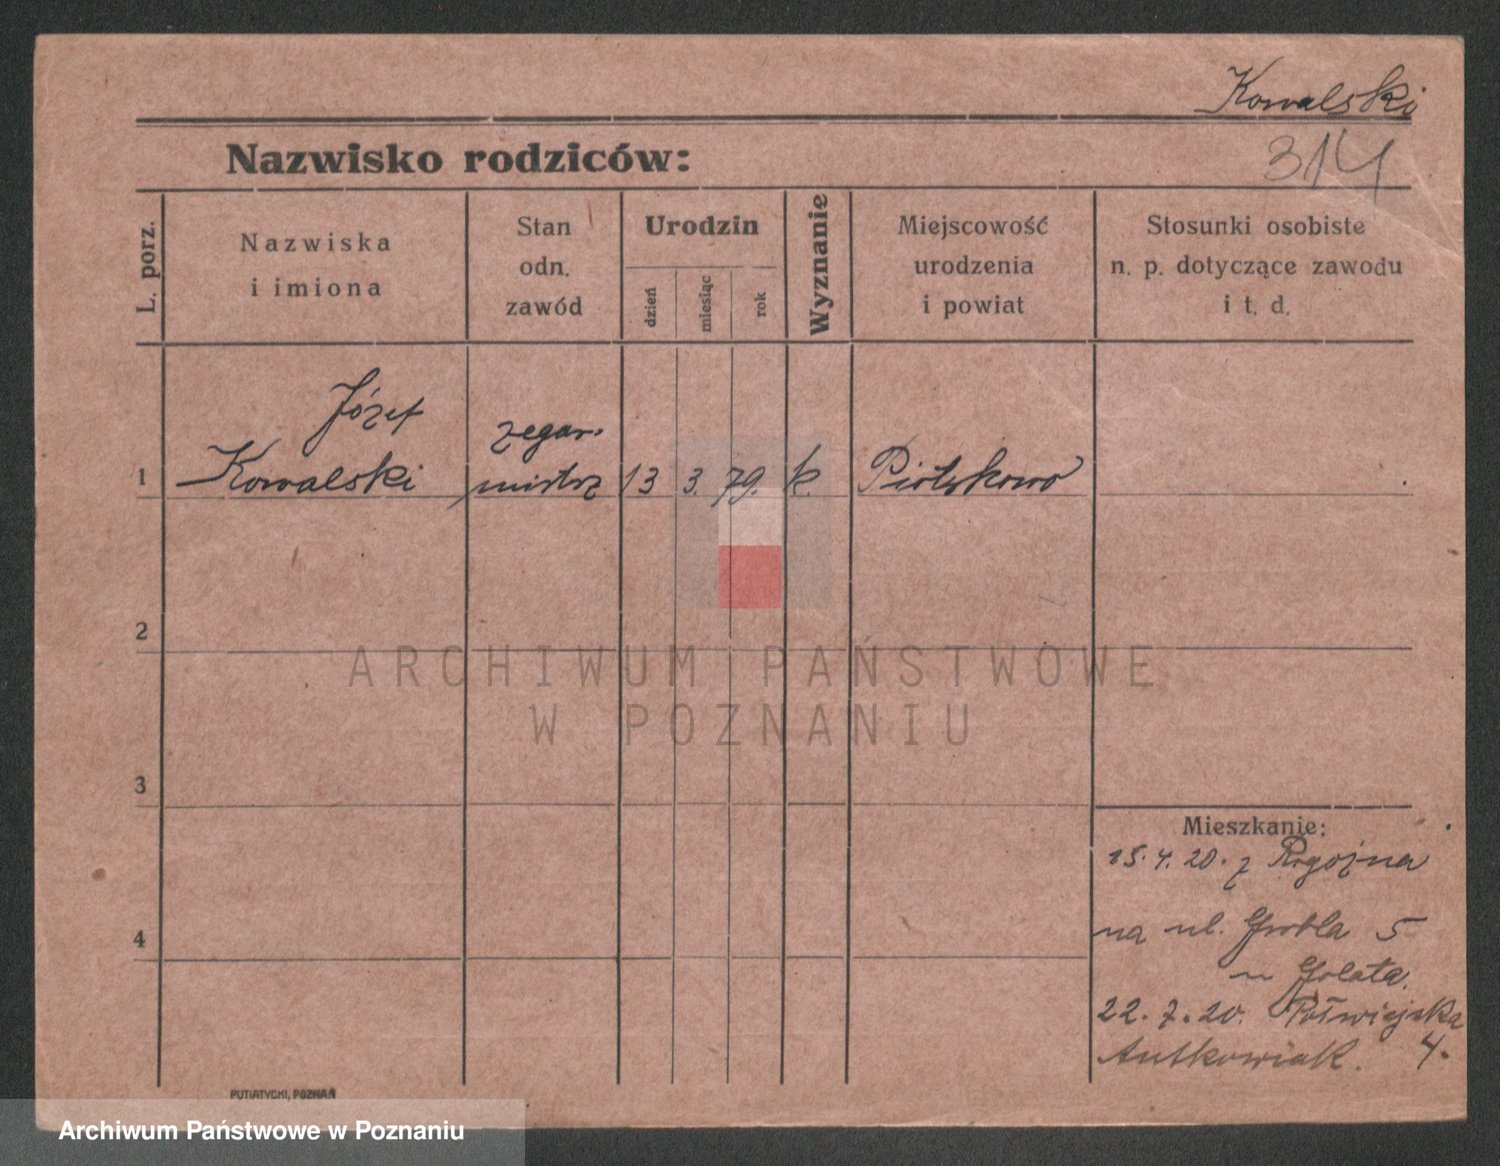 Kowalski
314
Nazwisko rodziców:
L. porz.
Nazwiska
i imiona
Stan
odn.
zawód
Urodzin
dzień
miesiąc
rok
Wyznanie
Miejscowość
urodzenia
i powiat
Stosunki osobiste
n. p. dotyczące zawodu
i t. d.
Józef
1 Kowalski
zegar-
mistrz
13 3. 79. k. Piotrkowo
2
3
4
Mieszkanie:
15.4.20. z Rogoźna
na ul. Grobla 5
u Golata.
22.7.20. Półwiejska
Antkowiak. 4.
PUTIATYCKI, POZNAŃ
ARCHIWUM PAŃSTWOWE
W POZNANIU
Archiwum Państwowe w Poznaniu